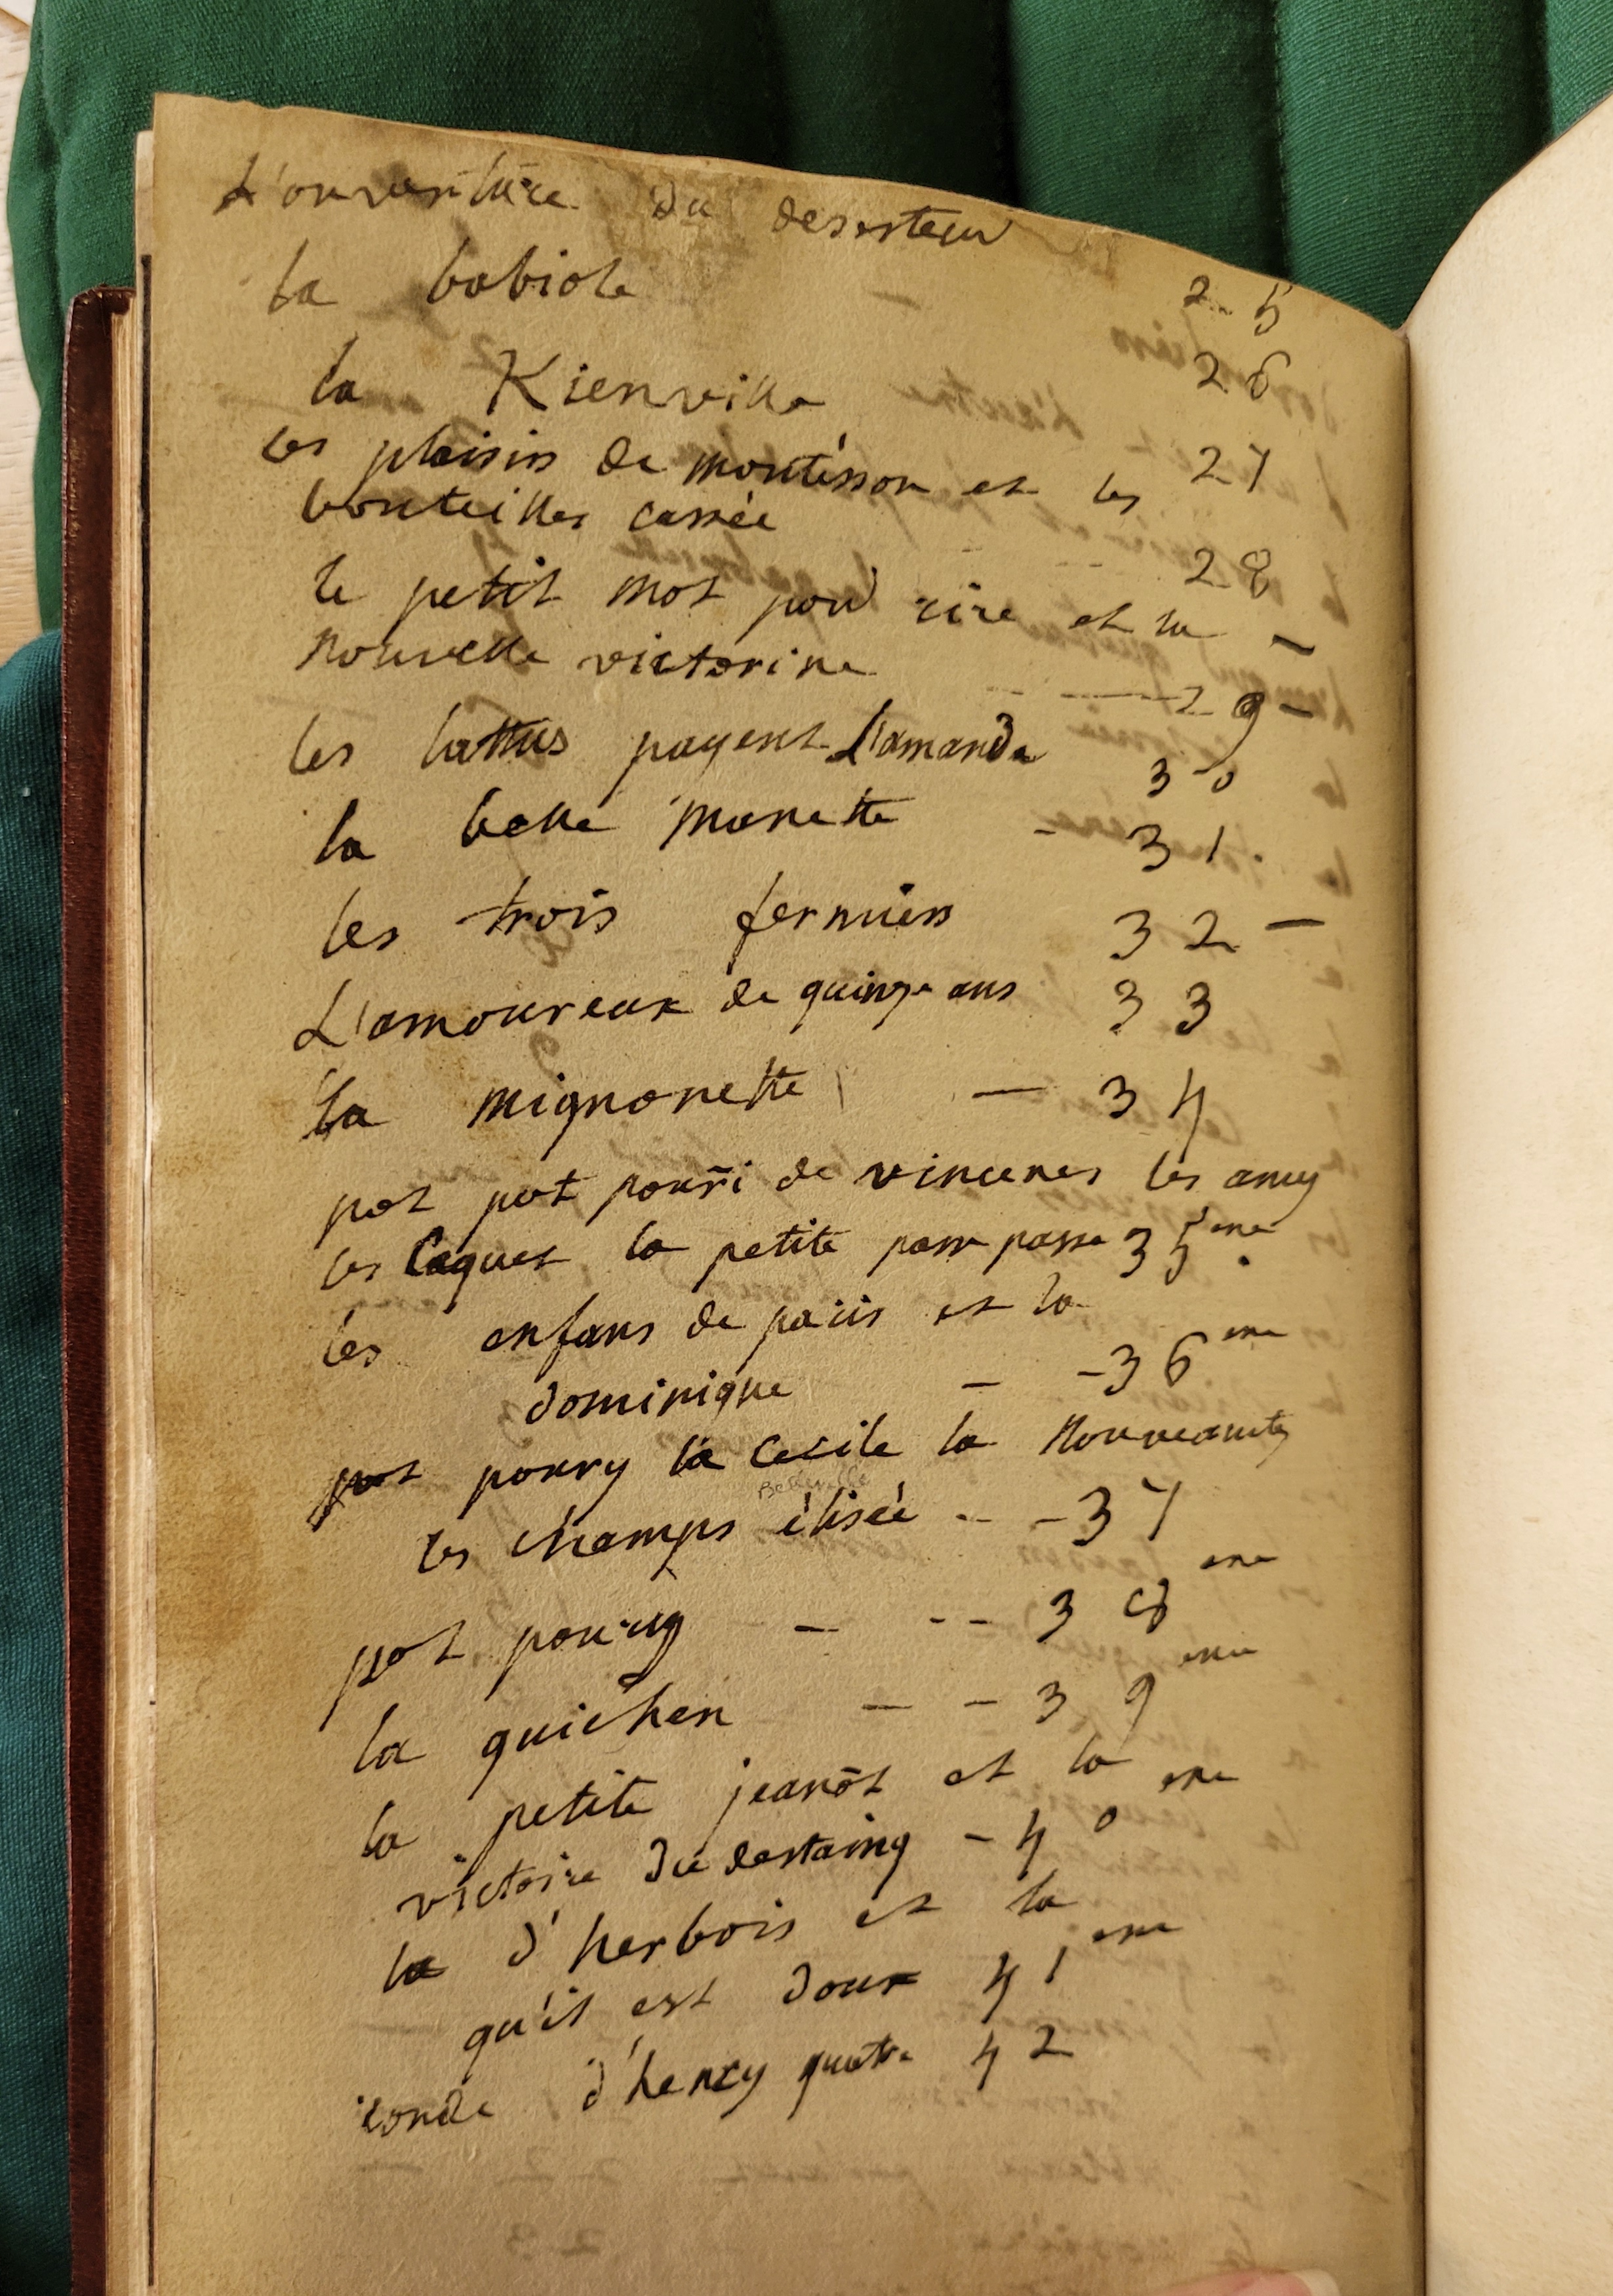 L'ouverture du deserteur 25
la babiole 26
la Kienville 27
les plaisirs de montesson et les
bouteilles cassée -- 28
le petit mot pour rire et la -
Nouvelle victorine -- 29 -
les battus payent L'amande 30
la belle manette - 31
les trois fermiers 32 -
L'amoureux de quinze ans 33
la mignonette — 34
pot pot pourri de vincenes les amy
les Caquet la petite passe passe 35eme
les enfans de paris et la
dominique - - 36eme
pot pourry la Cecile la Nouveauté
Belleville
les champs élisée -- 37
pot pourry - -- 38eme
la guichen - - 39eme
la petite jeanot et la
victoire du destaing - 40eme
la d'herbois et la
qu'il est doux 41eme
ronde d'henry quatre 42